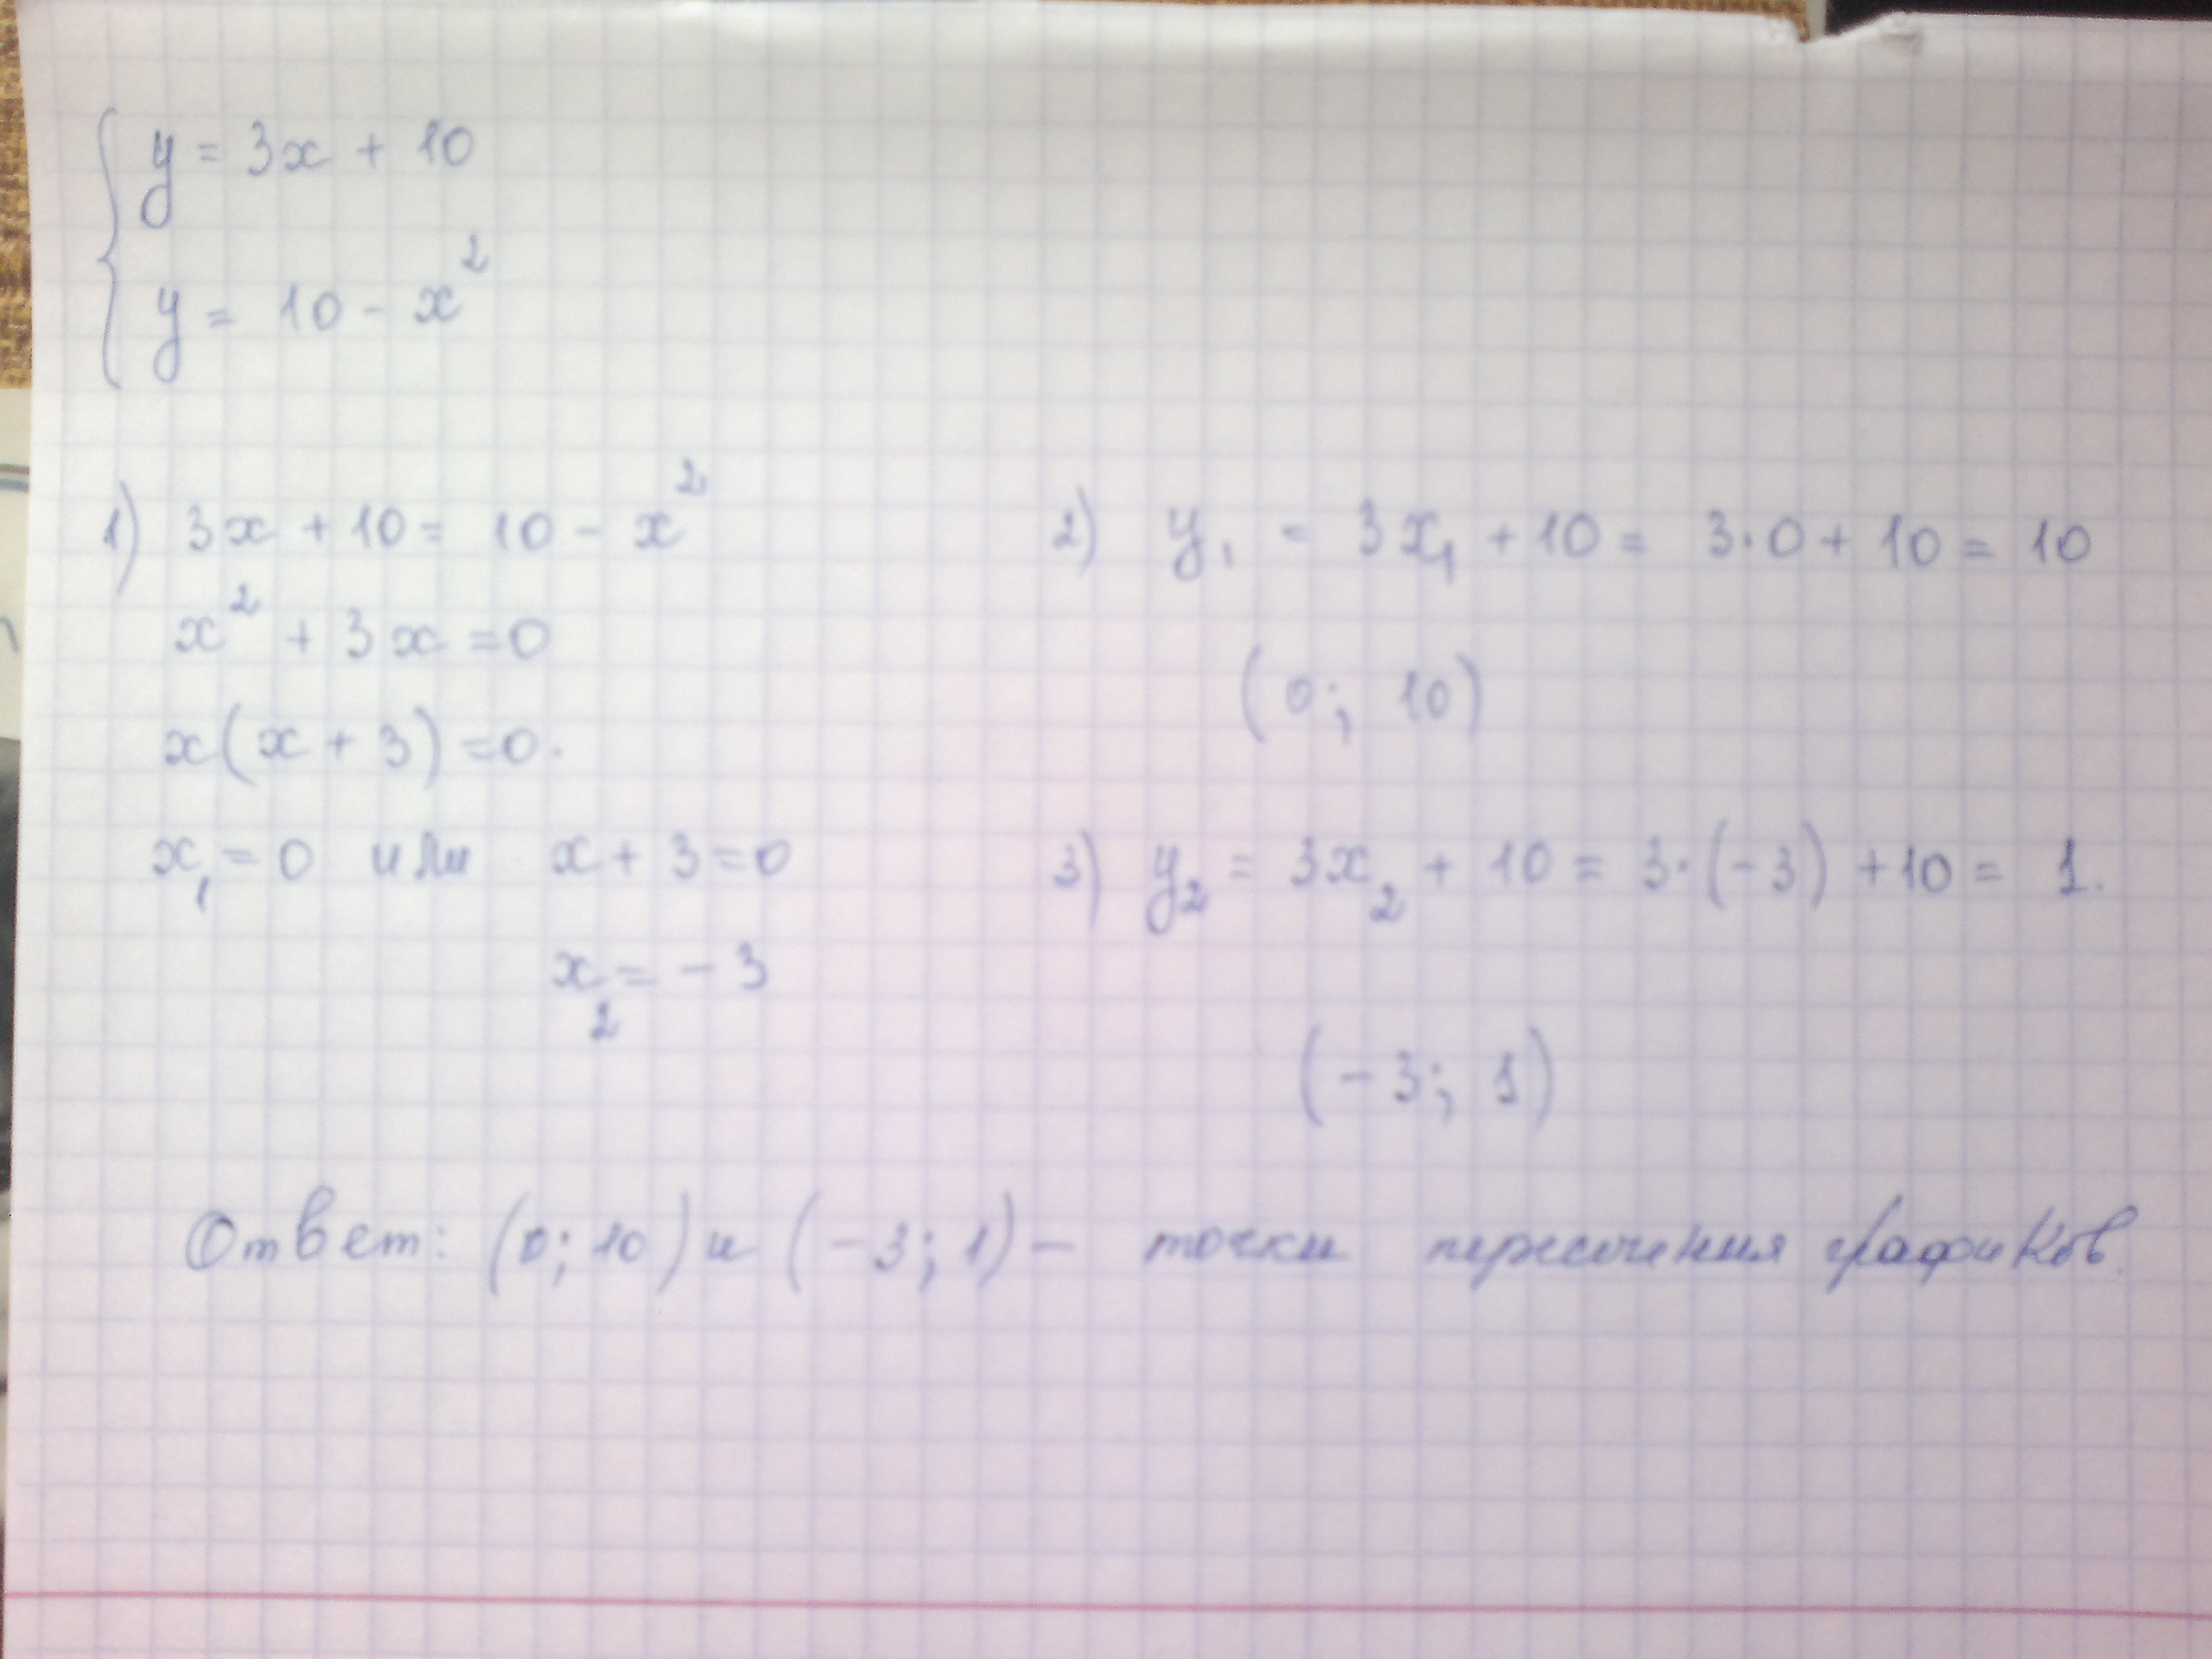 y = 3x + 10
y = 10 - x²
1) 3x + 10 = 10 - x²
x² + 3x = 0
x(x + 3) = 0.
x₁ = 0 или x + 3 = 0
x₂ = - 3
2) y₁ = 3x₁ + 10 = 3·0 + 10 = 10
(0; 10)
3) y₂ = 3x₂ + 10 = 3·(-3) + 10 = 1.
(-3; 1)
Ответ: (0; 10) и (-3; 1) - точки пересечения графиков.